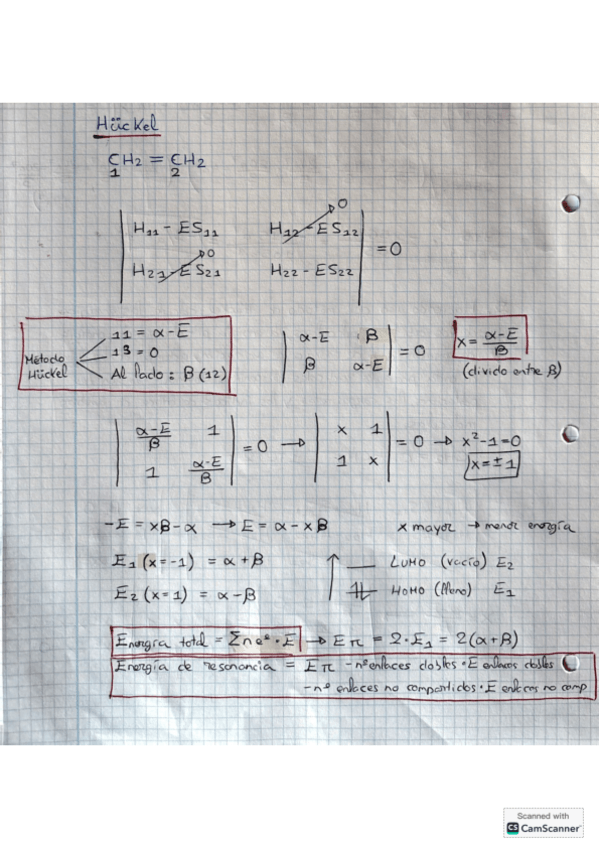 Hückel
CH2 = CH2
1 2
H11 - ES11 H12 - ES12 0
= 0
H21 - ES21 0 H22 - ES22
Método Hückel
11 = α-E
13 = 0
Al lado : β (12)
α-E β
β α-E
= 0
x = α-E/β
(divido entre β)
α-E/β 1
1 α-E/β
= 0 → x 1
1 x
= 0 → x²-1=0
x=±1
-E = xβ-α → E = α-xβ x mayor → menor energía
E1 (x=-1) = α+β LUMO (vacío) E2
E2 (x=1) = α-β HOMO (lleno) E1
Energía total = Σn e⁰ · E → Eπ = 2·E1 = 2(α+β)
Energía de resonancia = Eπ - nº enlaces dobles · E enlaces dobles
- nº enlaces no compartidos · E enlaces no comp
Scanned with
CS CamScanner